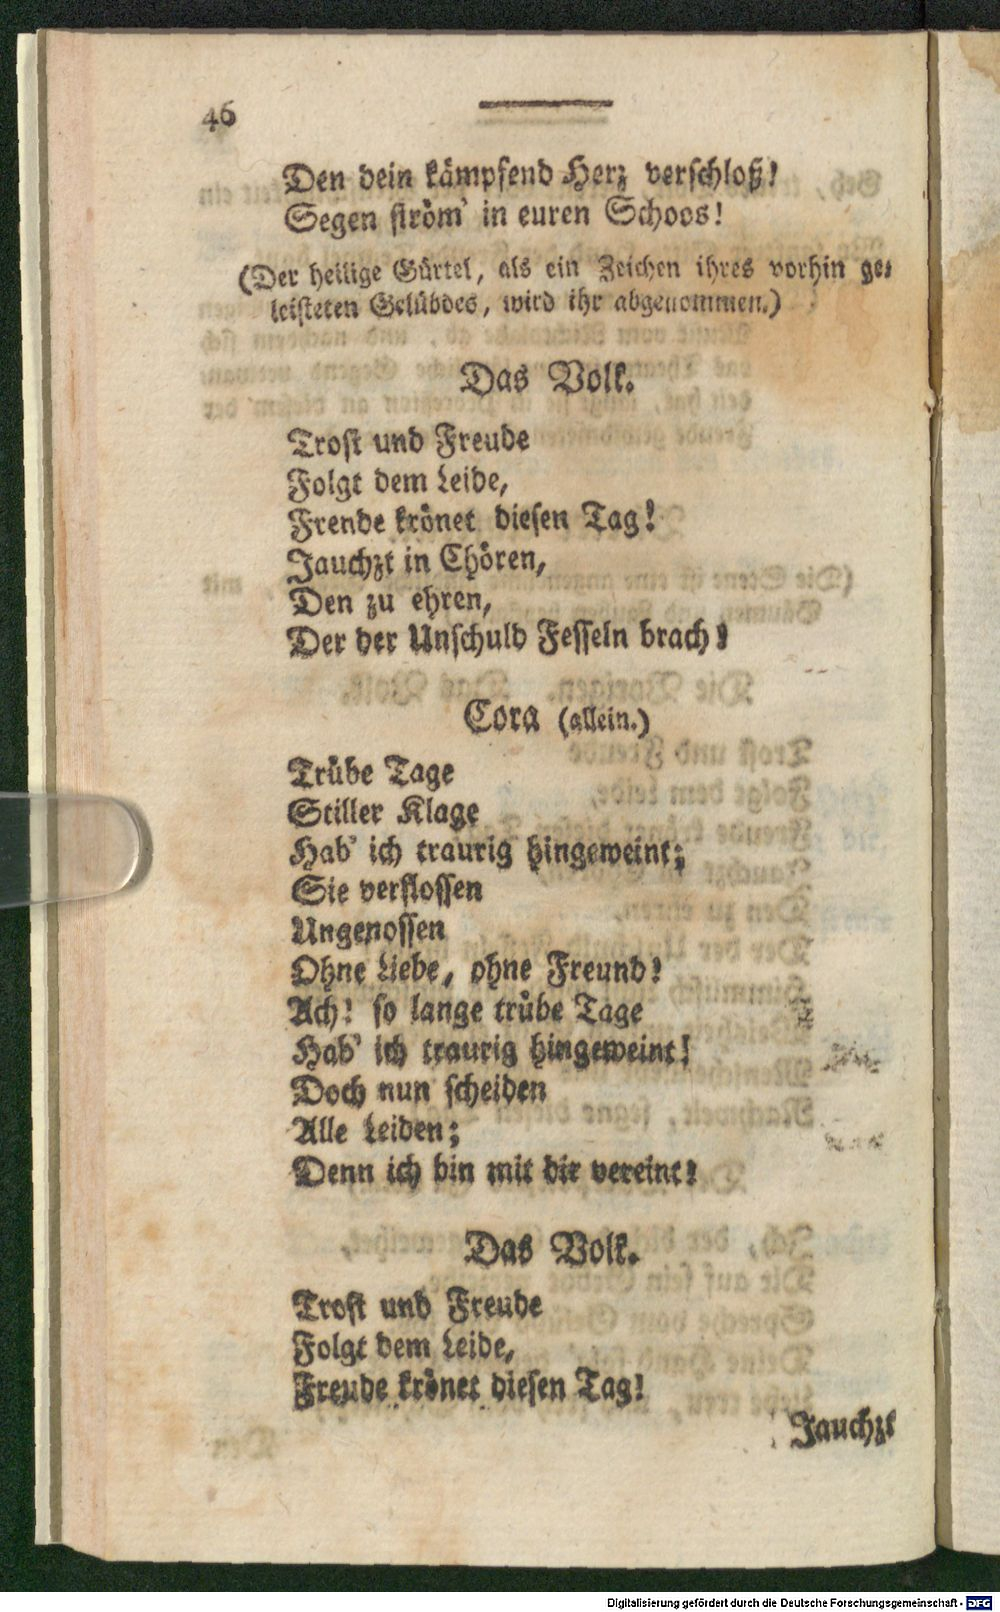 46
Den dein kämpfend Herz verschloß!
Segen ström' in euren Schoos!
(Der heilige Gürtel, als ein Zeichen ihres vorhin ge-
leisteten Gelübdes, wird ihr abgenommen.)
Das Volk.
Trost und Freude
Folgt dem Leide,
Frende krönet diesen Tag!
Jauchzt in Chören,
Den zu ehren,
Der der Unschuld Fesseln brach!
Cora (allein.)
Trübe Tage
Stiller Klage
Hab' ich traurig hingeweint;
Sie verflossen
Ungenossen
Ohne Liebe, ohne Freund!
Ach! so lange trübe Tage
Hab' ich traurig hingeweint!
Doch nun scheiden
Alle Leiden;
Denn ich bin mit dir vereint!
Das Volk.
Trost und Freude
Folgt dem Leide,
Freude krönet diesen Tag!
Jauchzt
Digitalisierung gefördert durch die Deutsche Forschungsgemeinschaft - DFG